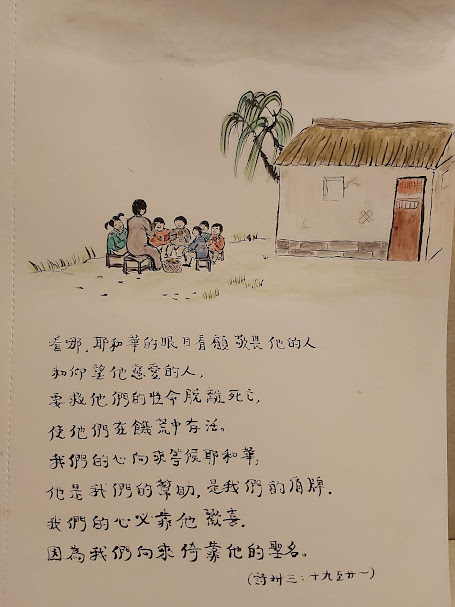 看哪，耶和華的眼目看顧敬畏他的人
和仰望他慈愛的人，
要救他們的性命脫離死亡，
使他們在饑荒中存活。
我們的心向來等候耶和華；
他是我們的幫助，是我們的盾牌．
我們的心必靠他歡喜．
因為我們向來倚靠他的聖名。
（詩卅三：十九至廿一）